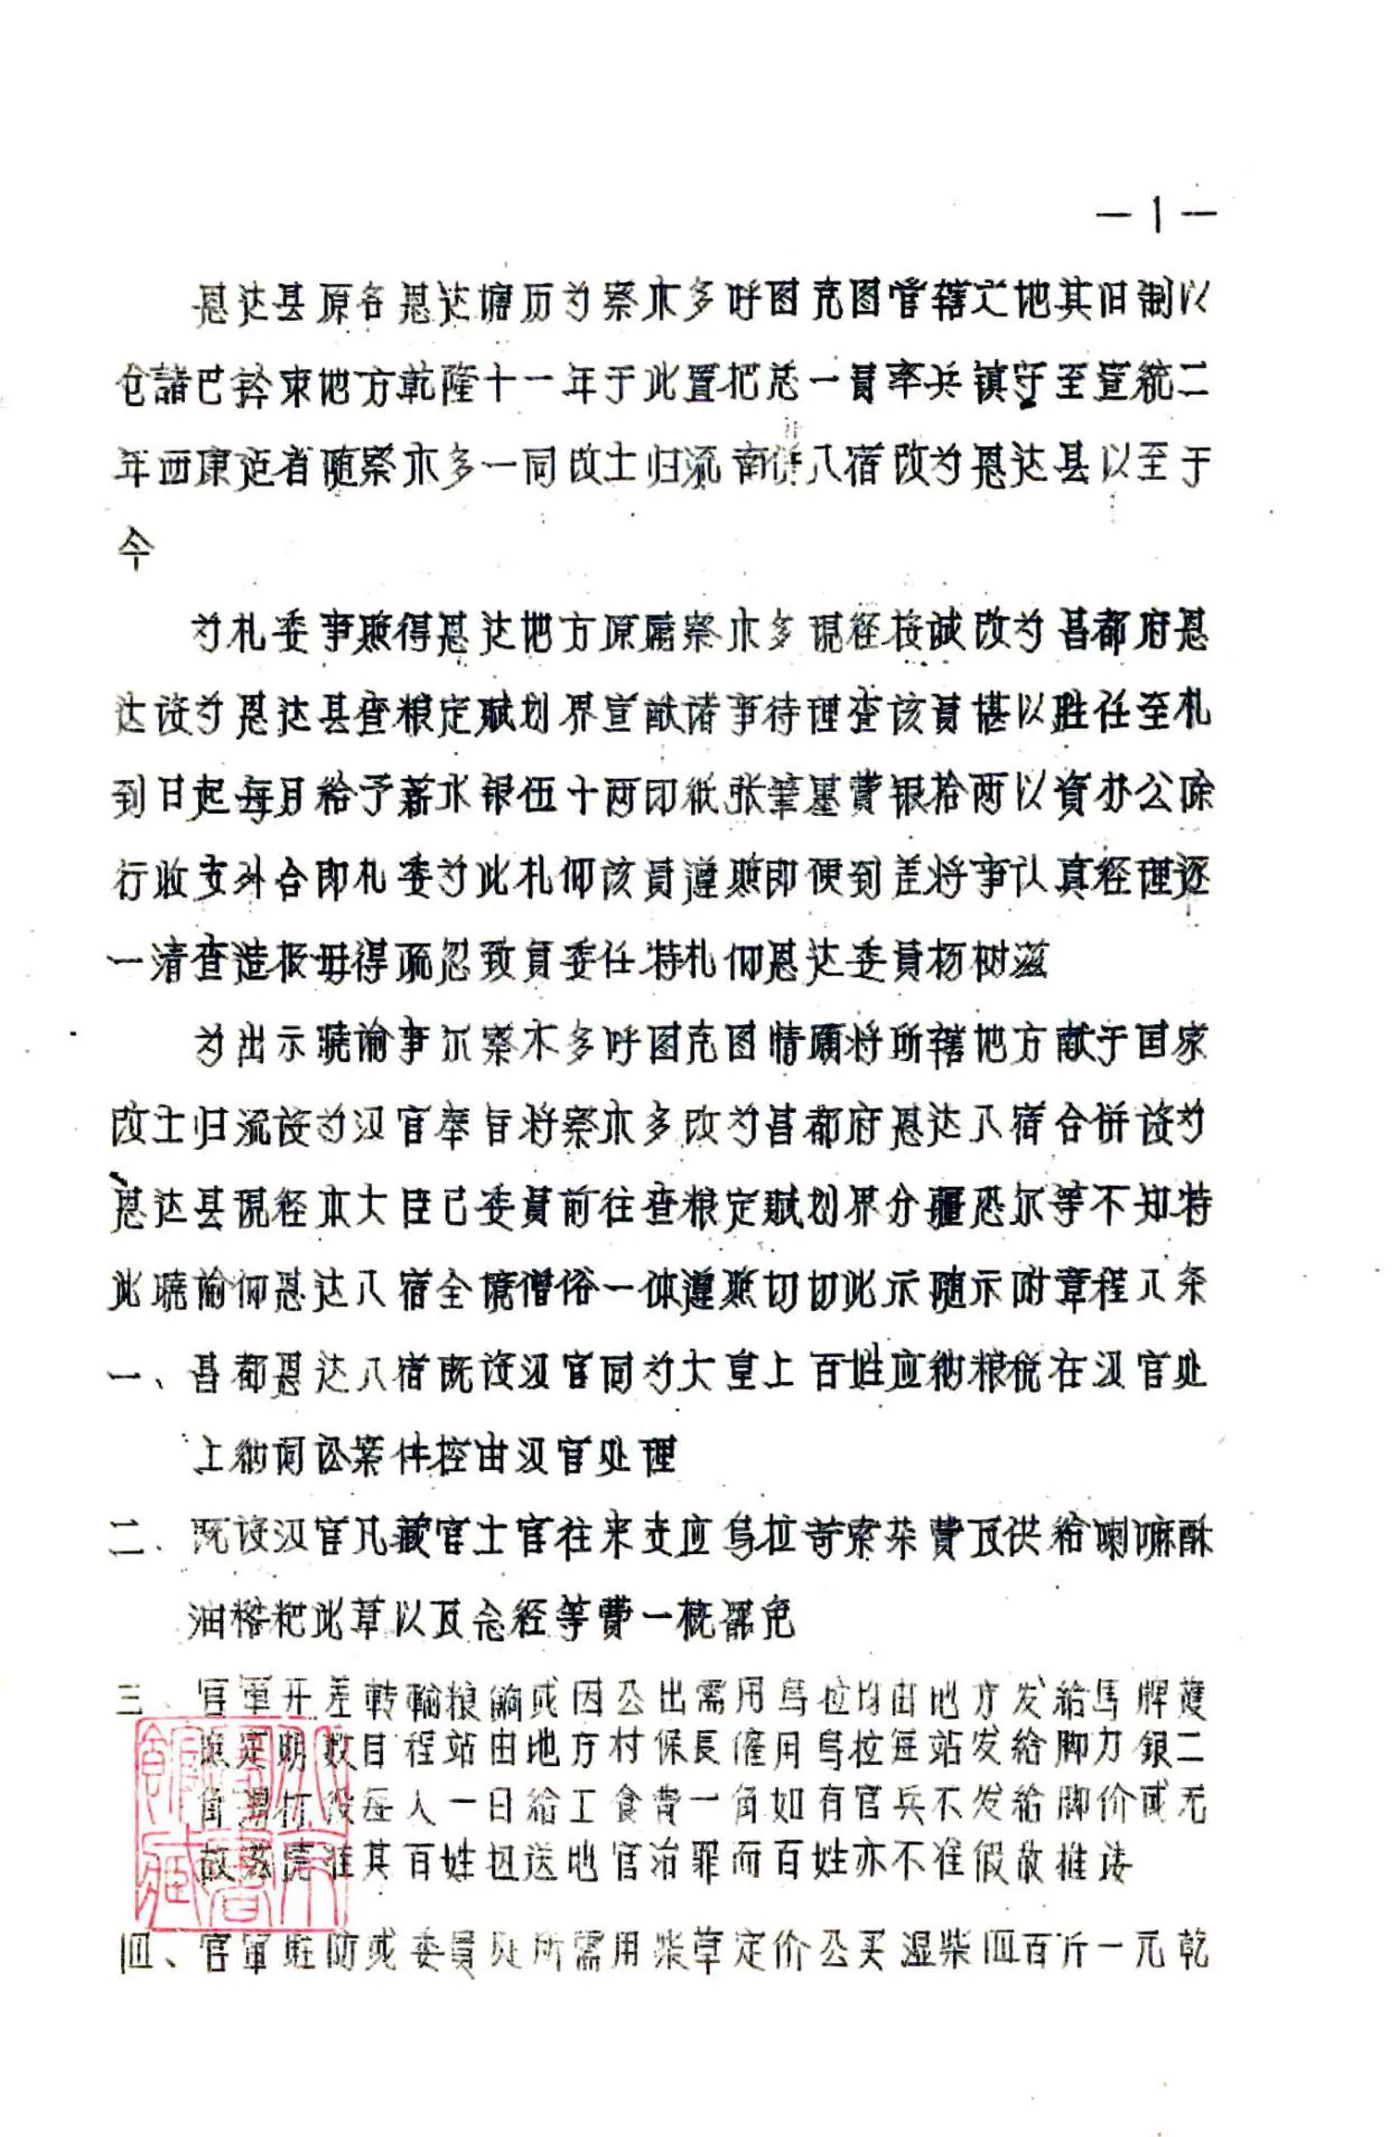 —1—
恩达县原名恩达塘历为察木多呼图克图管辖之地其旧制以
仓諸巴鈴束地方乾隆十一年于此置把总一員率兵镇守至宣統二
年西康建省随察木多一同改土归流 八宿改为恩达县以至于
今
为札委事照得恩达地方原属察木多现经投誠改为昌都府恩
达设为恩达县查粮定赋划界宣猷诸事待理查该員堪以胜任至札
到日起每月给予薪水银伍十两印纸张筆墨費银拾两以資办公除
行收支外合即札委为此札仰该員遵照即便到差将事认真经理逐
一清查造报毋得疏忽致負委任特札仰恩达委員杨树滋
为出示晓谕事尔察木多呼图克图情願将所辖地方献于国家
改土归流设为汉官奉旨将察木多改为昌都府恩达八宿合併设为
恩达县现经本大臣已委員前往查粮定赋划界分疆恐尔等不知特
此晓谕仰恩达八宿全境僧俗一体遵照切切此示随示附章程八条
一、昌都恩达八宿既设汉官同为大皇上百姓应纳粮税在汉官处
上纳词讼案件控由汉官处理
二、既设汉官凡藏官土官往来支应乌拉等索杂費及供给喇嘛酥
油糌粑柴草以及念经等費一概豁免
三、官軍开差转輸粮餉或因公出需用乌拉均由地方发給馬牌護
照注明数目程站由地方村保長僱用乌拉每站发給脚力銀二
角 每人一日給工食費一角如有官兵不发給脚价或无
故 准其百姓扭送地官治罪而百姓亦不准假故推诿
四、官軍駐防或委員处所需用柴草定价公买湿柴四百斤一元乾